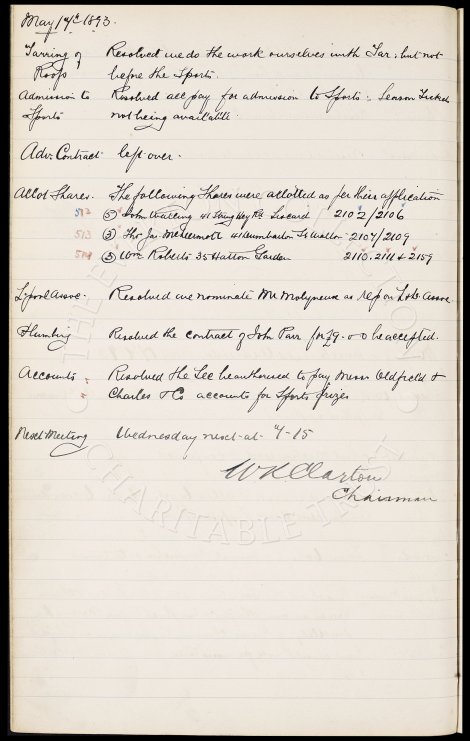 May 17th 1893.
Tarring of Resolved we do the work ourselves with Tar, but not
Roofs before the Sports.
Admission to Resolved all pay for admission to Sports. Season Tickets
Sports not being available.
Adv. Contract left over.
Allot Shares. The following Shares were allotted as per their application
512 (5) John Watling 41 Seacombe Liscard 2102/2106
513 (3) Thos Jas McDermott 41 Dumbarton St Walton 2107/2109
514 (3) Wm Roberts 35 Hatton Garden 2110.2111 & 2159
L'pool Assoc. Resolved we nominate Mr Molyneux as rep on Assoc.
Plumbing Resolved the contract of John Parr for £9-0-0 be accepted.
Accounts Resolved the Sec be authorised to pay Messrs Oldfield &
Charles & Co accounts for Sports prizes
Next Meeting Wednesday next at 7-15
W R Clayton
Chairman
THE EVERTON
CHARITABLE TRUST